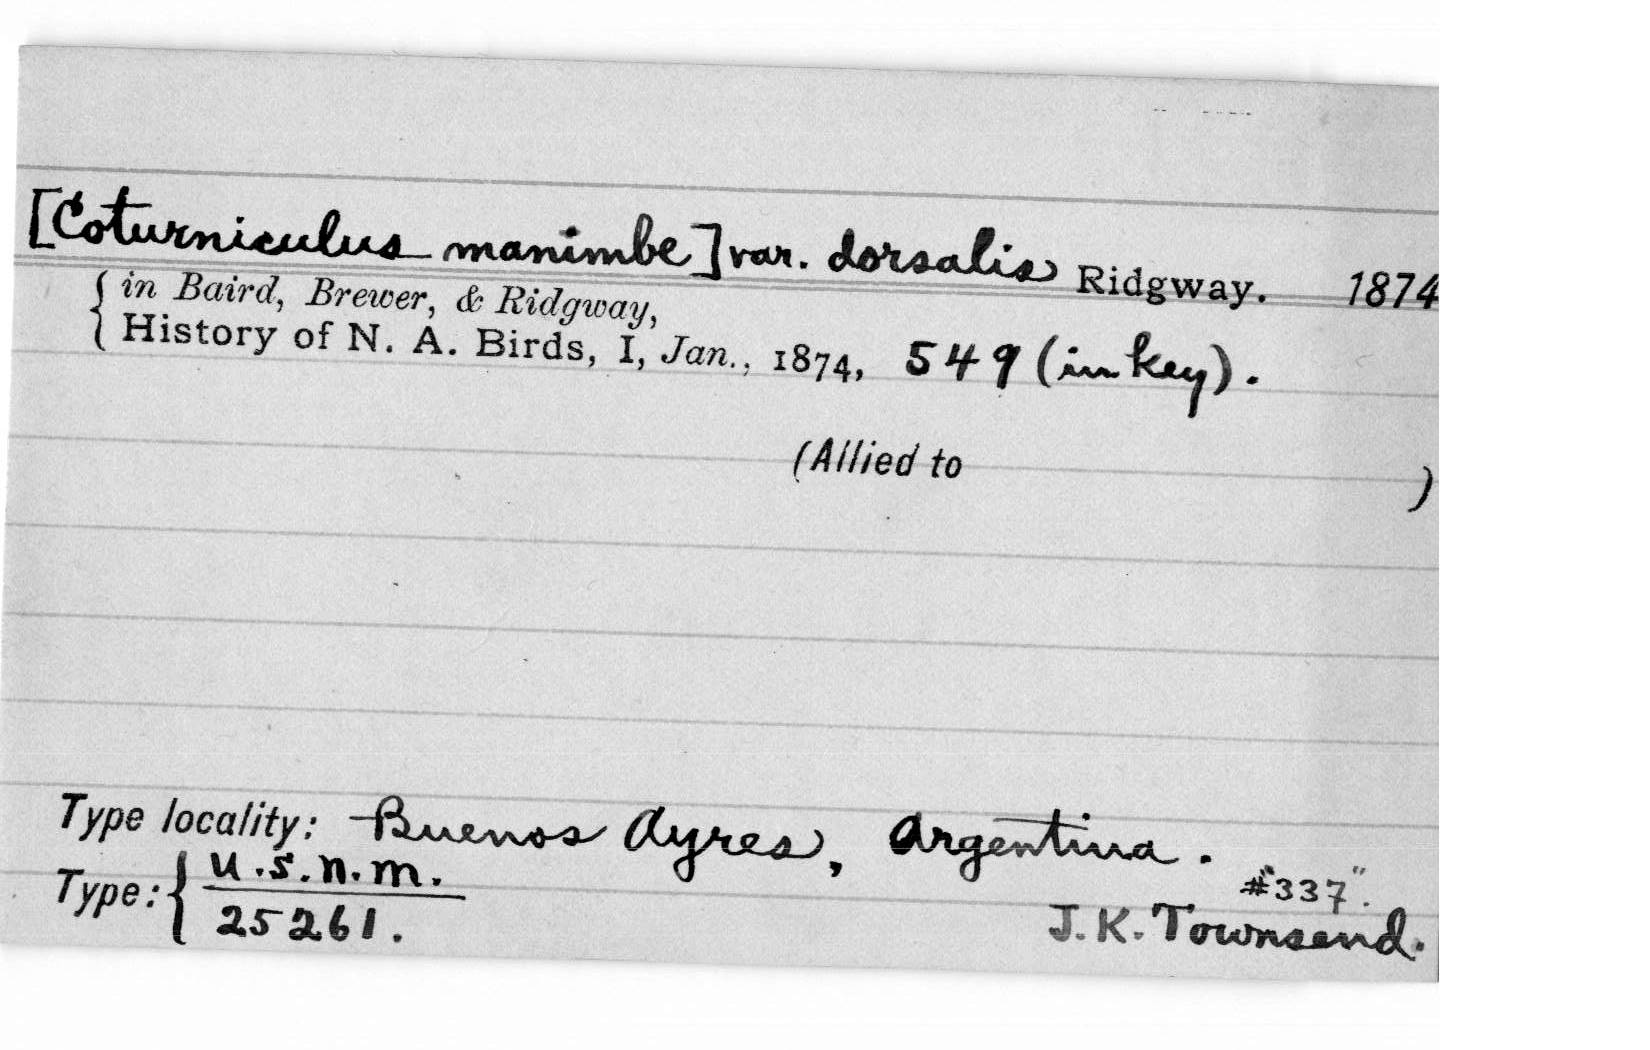 [Coturniculus manimbe] var. dorsalis Ridgway. 1874
in Baird, Brewer, & Ridgway,
History of N. A. Birds, I, Jan., 1874, 549 (in key).
(Allied to )
Type locality: Buenos Ayres, Argentina.
Type: { U.S.N.M.
25261.
#"337".
J. K. Townsend.